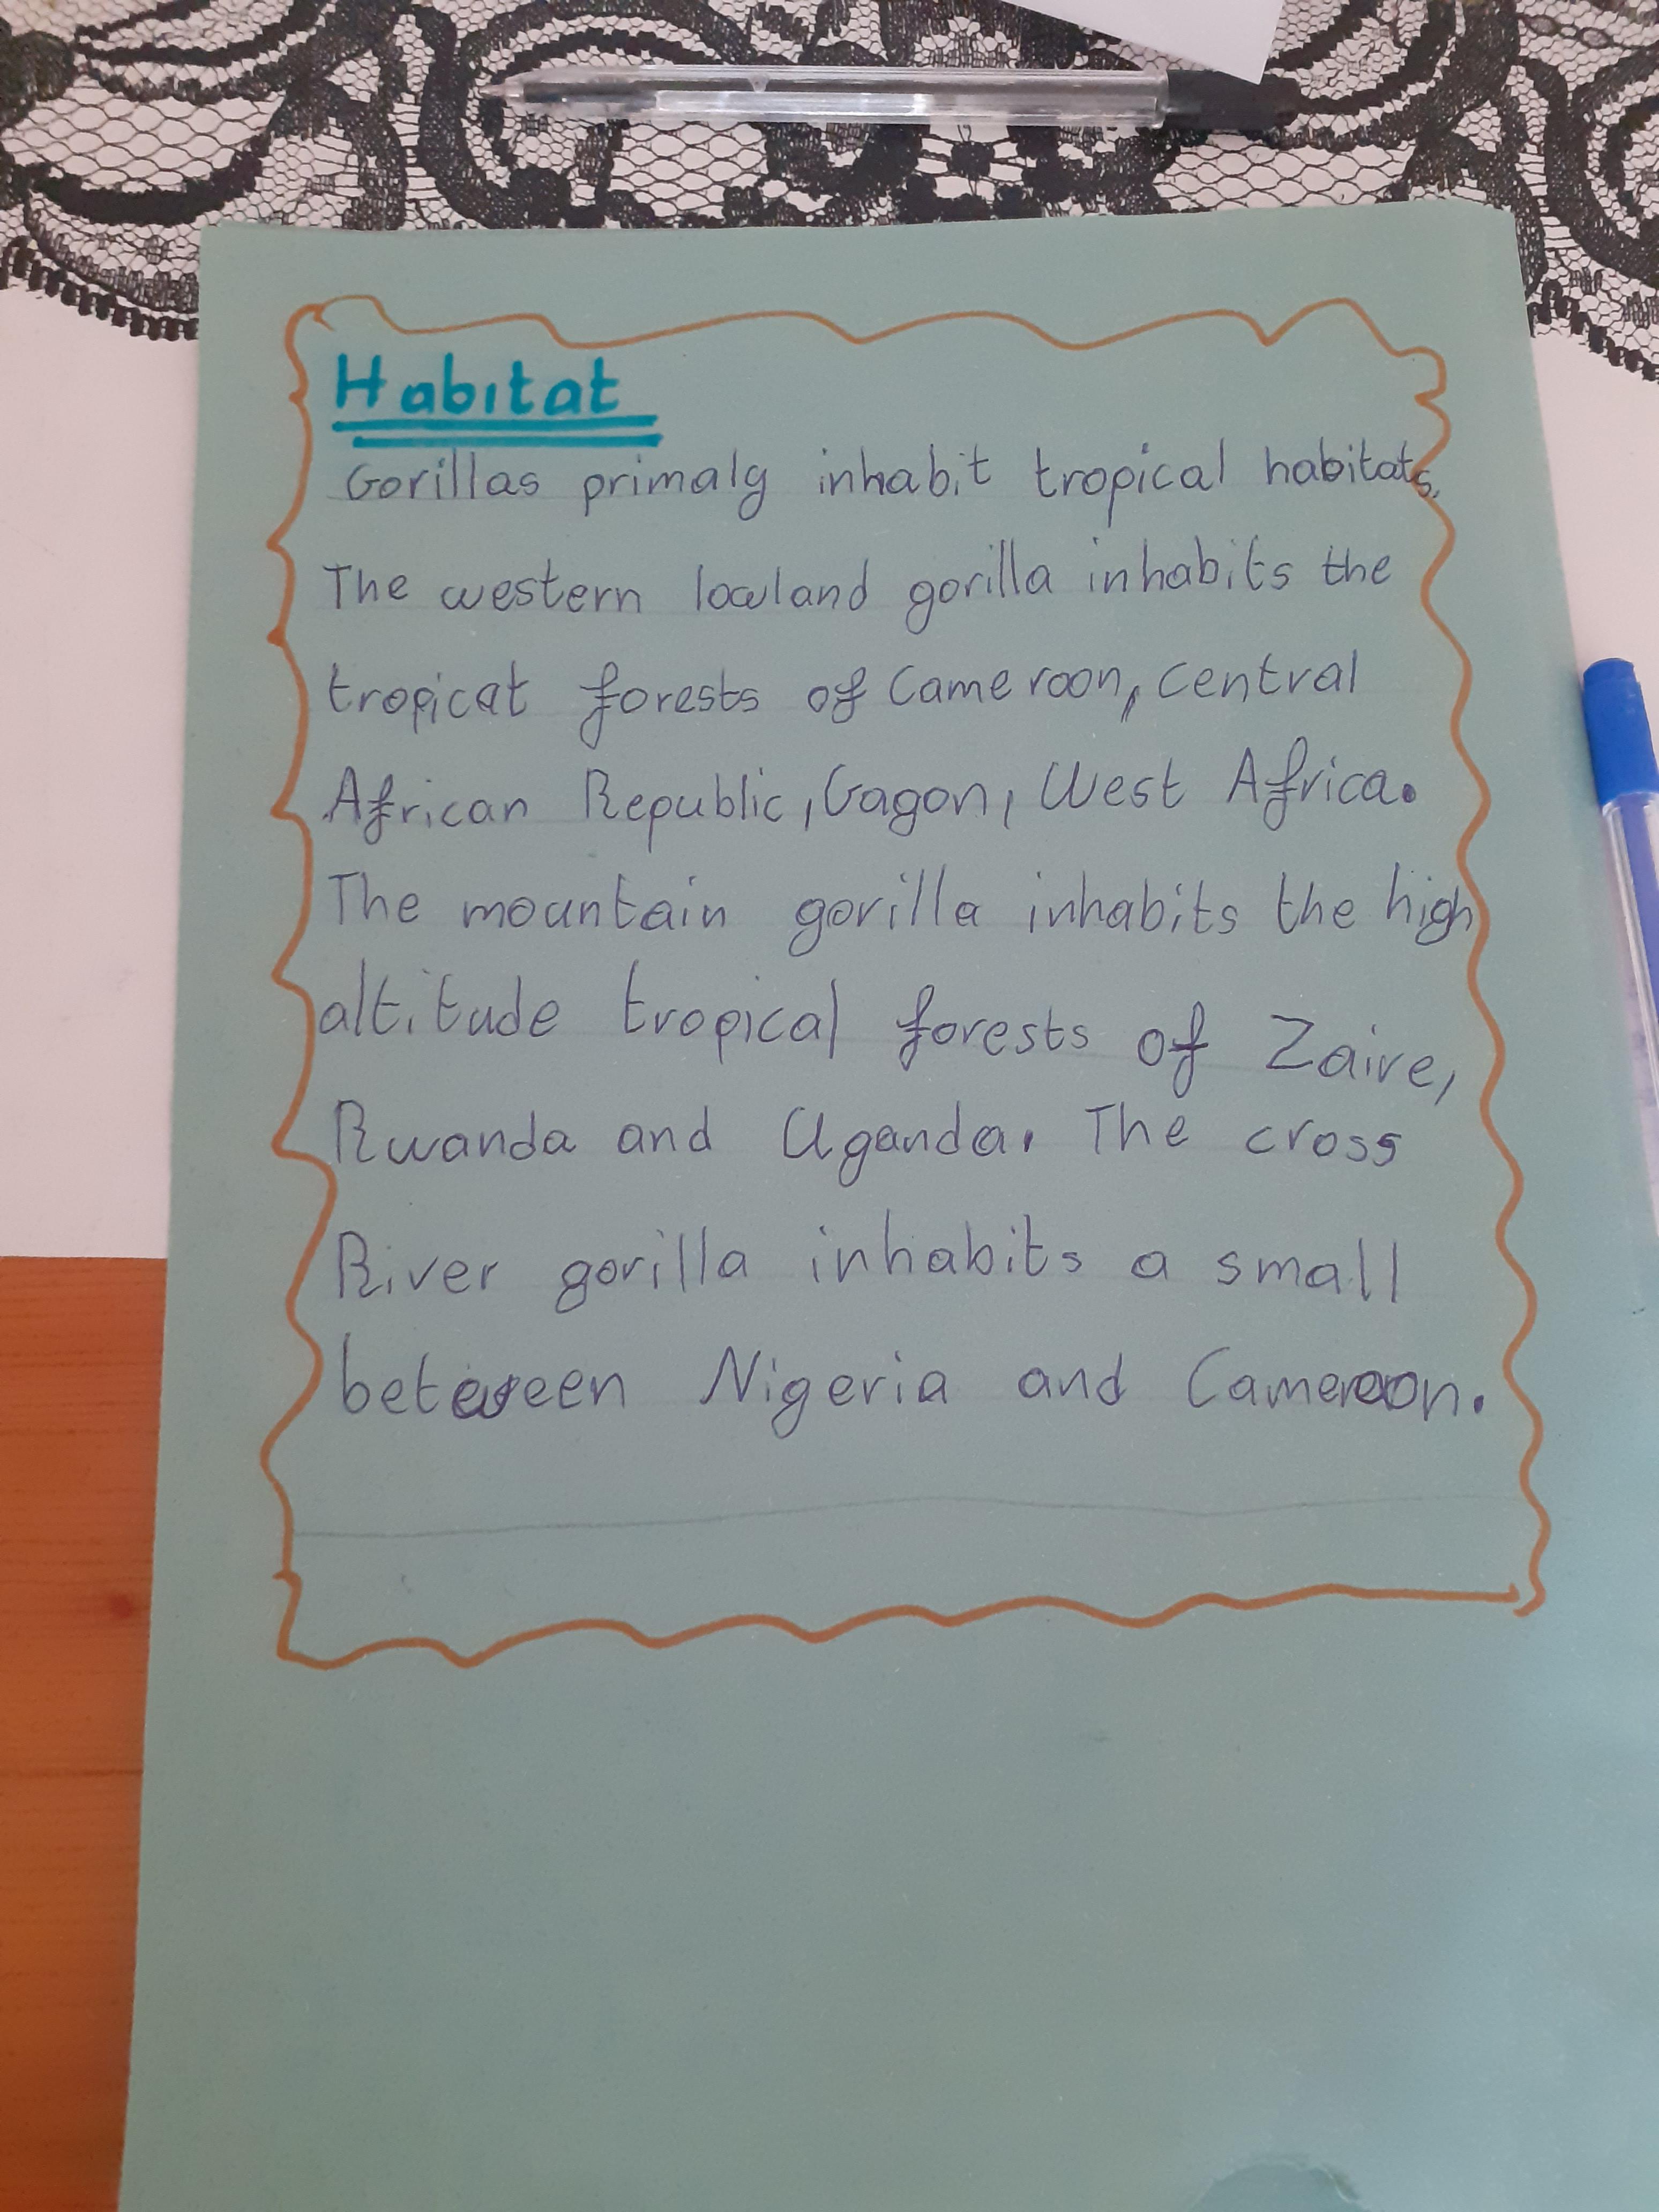 Habitat
Gorillas primaly inhabit tropical habitats.
The western lowland gorilla inhabits the
tropicat forests of Cameroon, central
African Republic, Gagon, West Africa.
The mountain gorilla inhabits the high
altitude tropical forests of Zaire,
Rwanda and Uganda. The cross
River gorilla inhabits a small
between Nigeria and Cameroon.